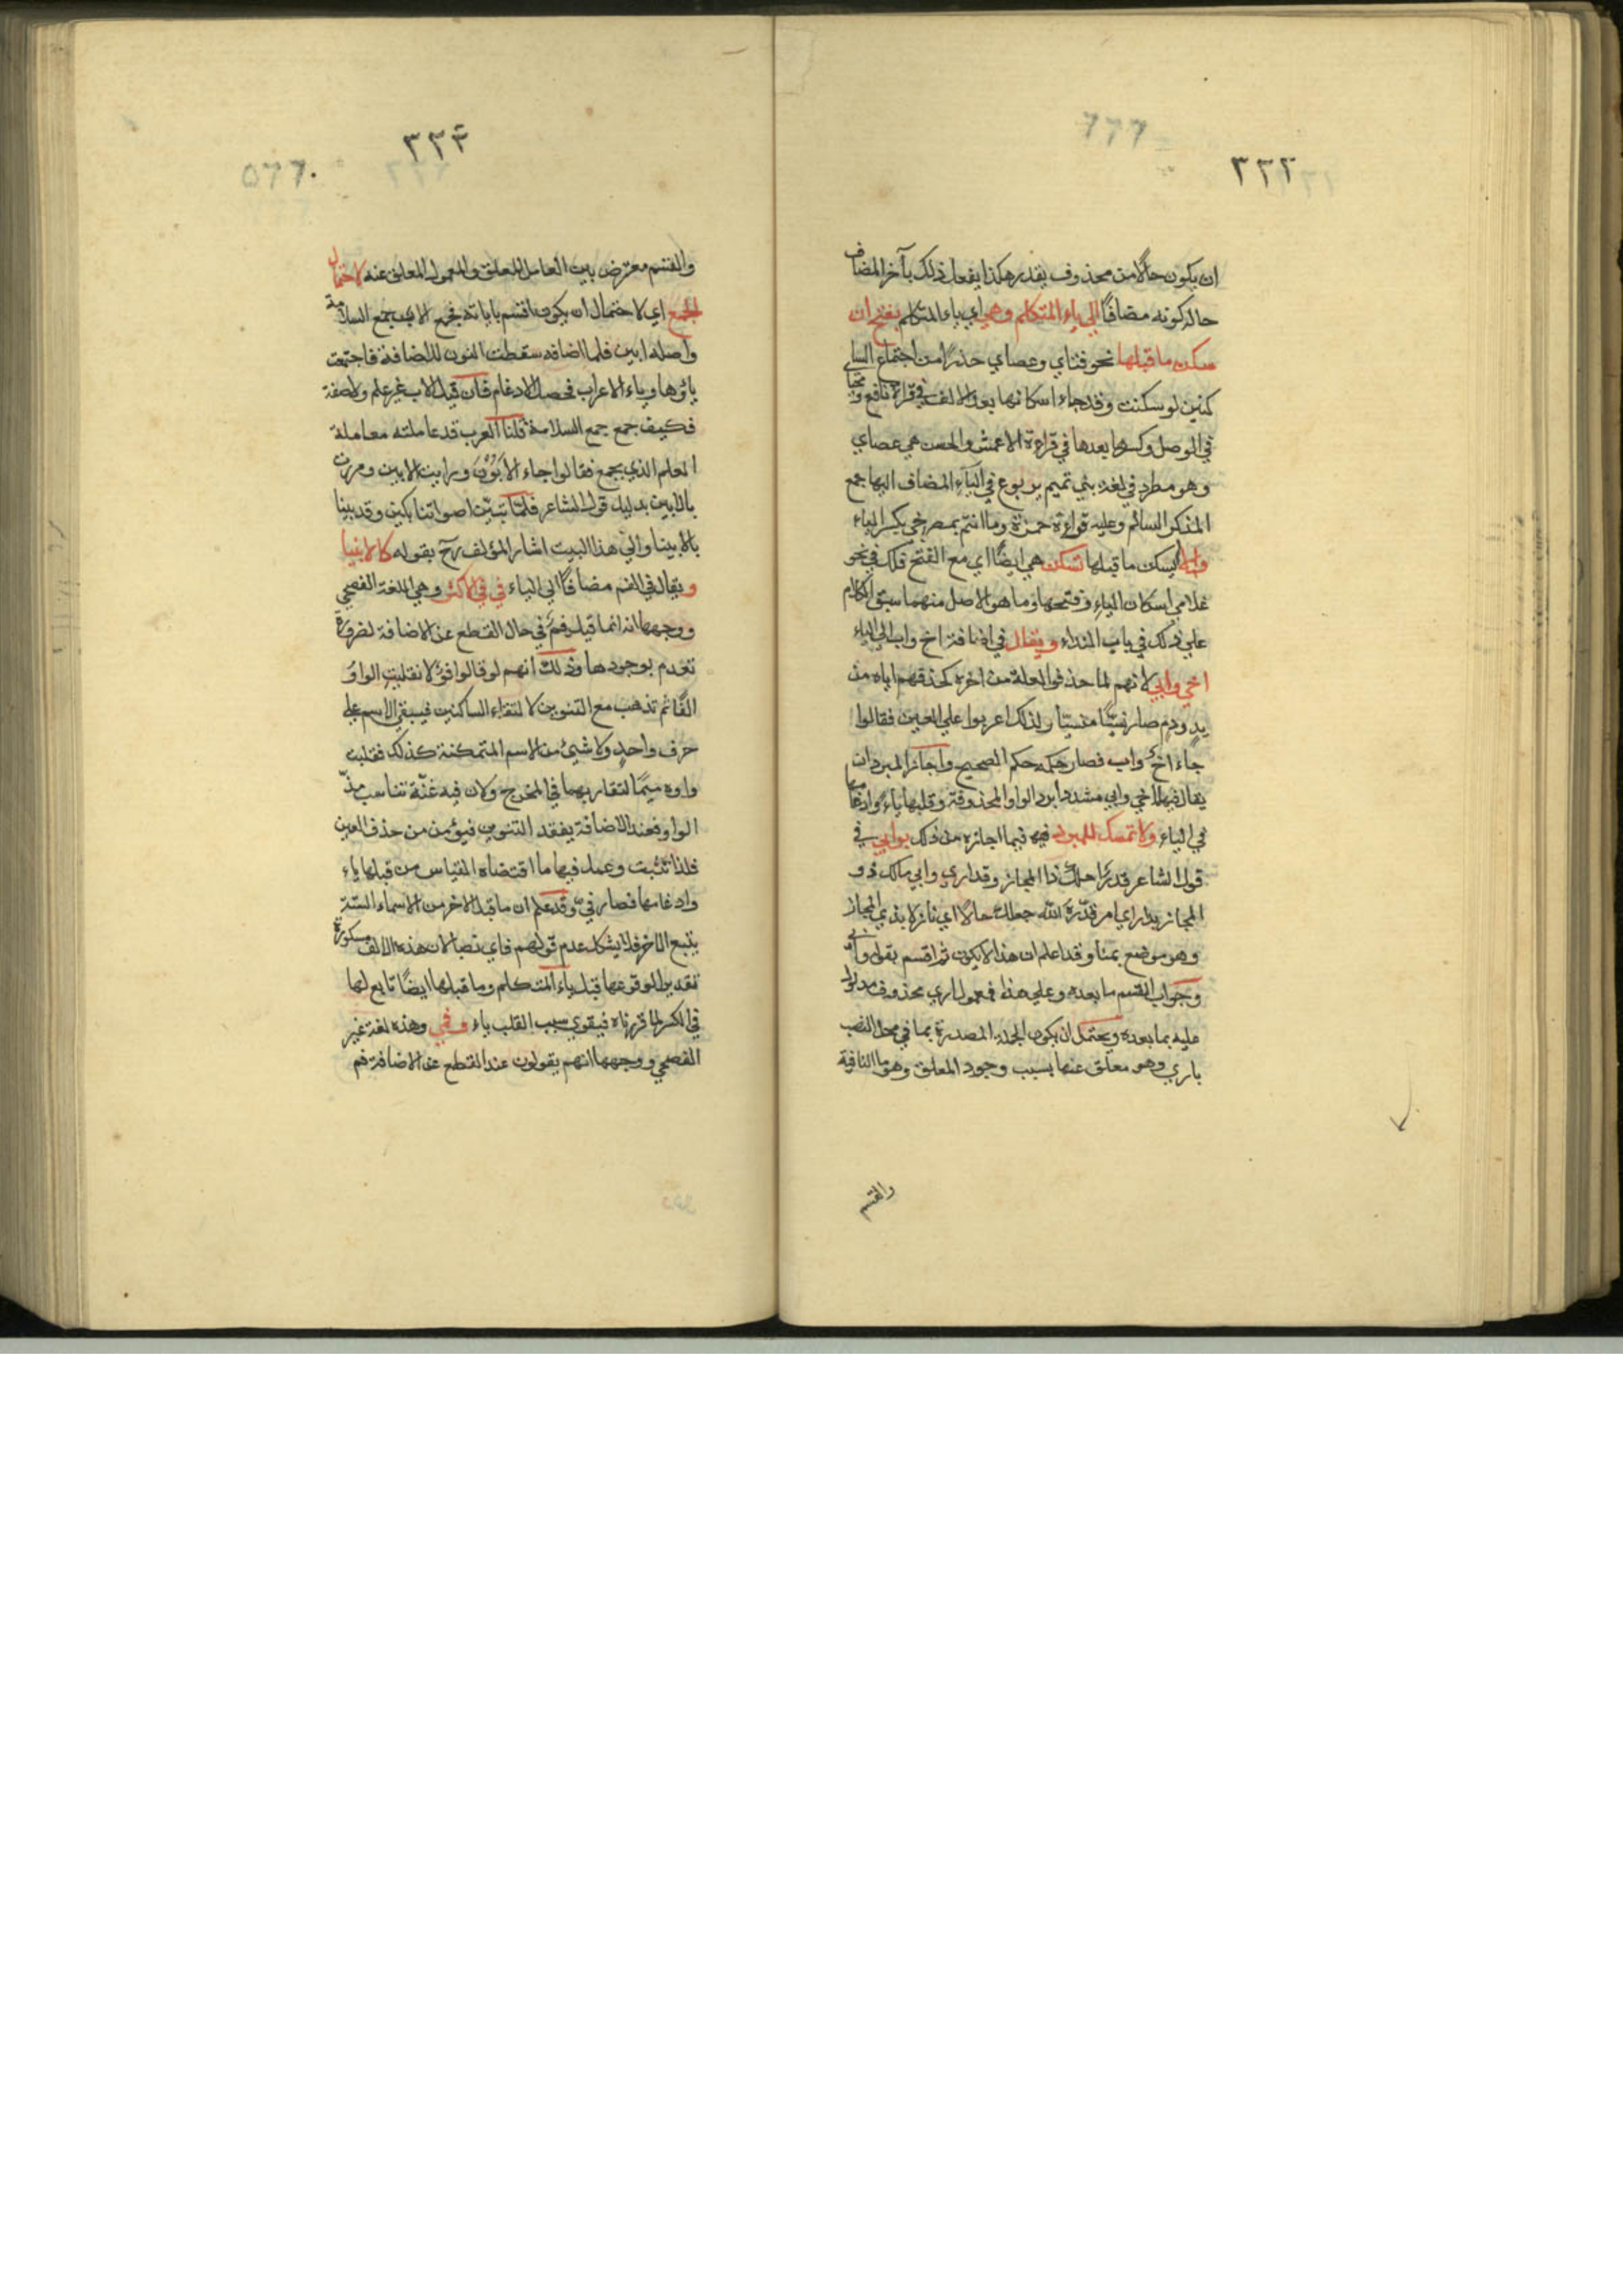 ٣٣٢
ان يكون حالا من محذوف يقدر هكذا يفعل ذلك بآخر المضاف
حال كونه مضافًا الي ياء المتكلم وهي اي ياء المتكلم تفتح ان
سكن ما قبلها نحو فتاي وعصاي حذرًا من اجتماع السا
كنين لو سكنت وقد جاء اسكانها بعد الالف في قراءة نافع ومحياي
في الوصل وكسرها بعدها في قراءة الاعمش والحسن هي عصاي
وهو مطرد في لغة بني تميم يربوع في الياء المضاف اليها جمع
المذكر السالم وعليه قراءة حمزة وما انتم بمصرخي بكسر الياء
والا يسكن ما قبلها تسكن هي ايضًا اي مع الفتح فلك في نحو
غلامي اسكان الياء وفتحها وما هو الاصل منهما سبق الكلام
علي ذلك في باب النداء ويقال في اضافة اخ واب الي الياء
اخي وابي لانهم لما حذفوا العلة من اخره كحذفهم اياه من
يدٍ ودمٍ صار نسيًّا منسيّا ولذلك اعربوا علي العين فقالوا
جاء اخٌ واب فصار حكمه حكم الصحيح واجاز المبرد ان
يقال فيهما اخي وابي مشددا برد الواو المحذوفة وقلبها ياءً وادغامها
في الياء ولا تمسك للمبرد فيه فيما اجازه من ذلك بوابي في
قول الشاعر قدرٌ احلّك ذا المجاز وقد اري وابي مالك ذو
المجاز بدار اي امر قدّره الله جعلك حالاّ اي نازلا بذي المجاز
وهو موضع بمنا وقد اعلم ان هذا لا يكون ثم اقسم بقوله وابي
وجواب القسم ما بعده وعلي هذا فمعمول اري محذوف مدلول
عليه بما بعده ويحتمل ان يكون الجملة المصدرة بما في محل النصب
باري وهو معلق عنها بسبب وجود المعلق وهو ما النافية
والقسم
٣٣٣
والقسم معترض بين العامل المعلق والمعمول المعلق عنه لاحتمال
الجمع اي لاحتمال ان يكون اقسم باباته فجمع الاب جمع السلامة
واصله ابين فلما اضافه سقطت النون للاضافة فاجتمعت
ياؤها وياء الاعراب فحصل الادغام فان قيل الاب غير علم ولا صفة
فكيف جمع جمع السلامة قلنا العرب قد عاملته معاملة
العلم الذي يجمع فقالوا جاء الابون ورايت الابين ومررت
بالابين بدليل قول الشاعر فلما تبيّن اصواتنا بكين وفديننا
بالابينا والي هذا البيت اشار المؤلف رح بقوله كالابنيا
ويقال في الفم مضافًا الي الياء فيّ في الاكثر وهي اللغة الفصحي
ووجهها انه انما قيل فم في حال القطع عن الاضافة لضرورة
تعدم بوجودها وذلك انهم لو قالوا فوٌ لانقلبت الواو
الفًا ثم تذهب مع التنوين لالتقاء الساكنين فيبقي الاسم علي
حرف واحدٍ ولا شيئ من الاسم المتمكنة كذلك فقلبت
واوه ميمًا لتقاربهما في المخرج ولان فيه غنّة تناسب مدّ
الواو فعند الاضافة يفقد التنوين فيؤمن من حذف العين
فلذا تثبت وعمل فيها ما اقتضاه القياس من قبلها ياء
وادغامها فصار فيّ وقد علم ان ما قبل الاخر من الاسماء الستة
يتبع الاخر فلا يشكل عدم قولهم فاي نصبا لان هذه الالف مكسورة
تقديرا لوقوعها قبل ياء المتكلم وما قبلها ايضًا تابع لها
في الكسر لما قررناه فيقوي سبب القلب ياء وفمي وهذه لغة غير
الفصحي ووجهها انهم يقولون عند القطع عن الاضافة فم